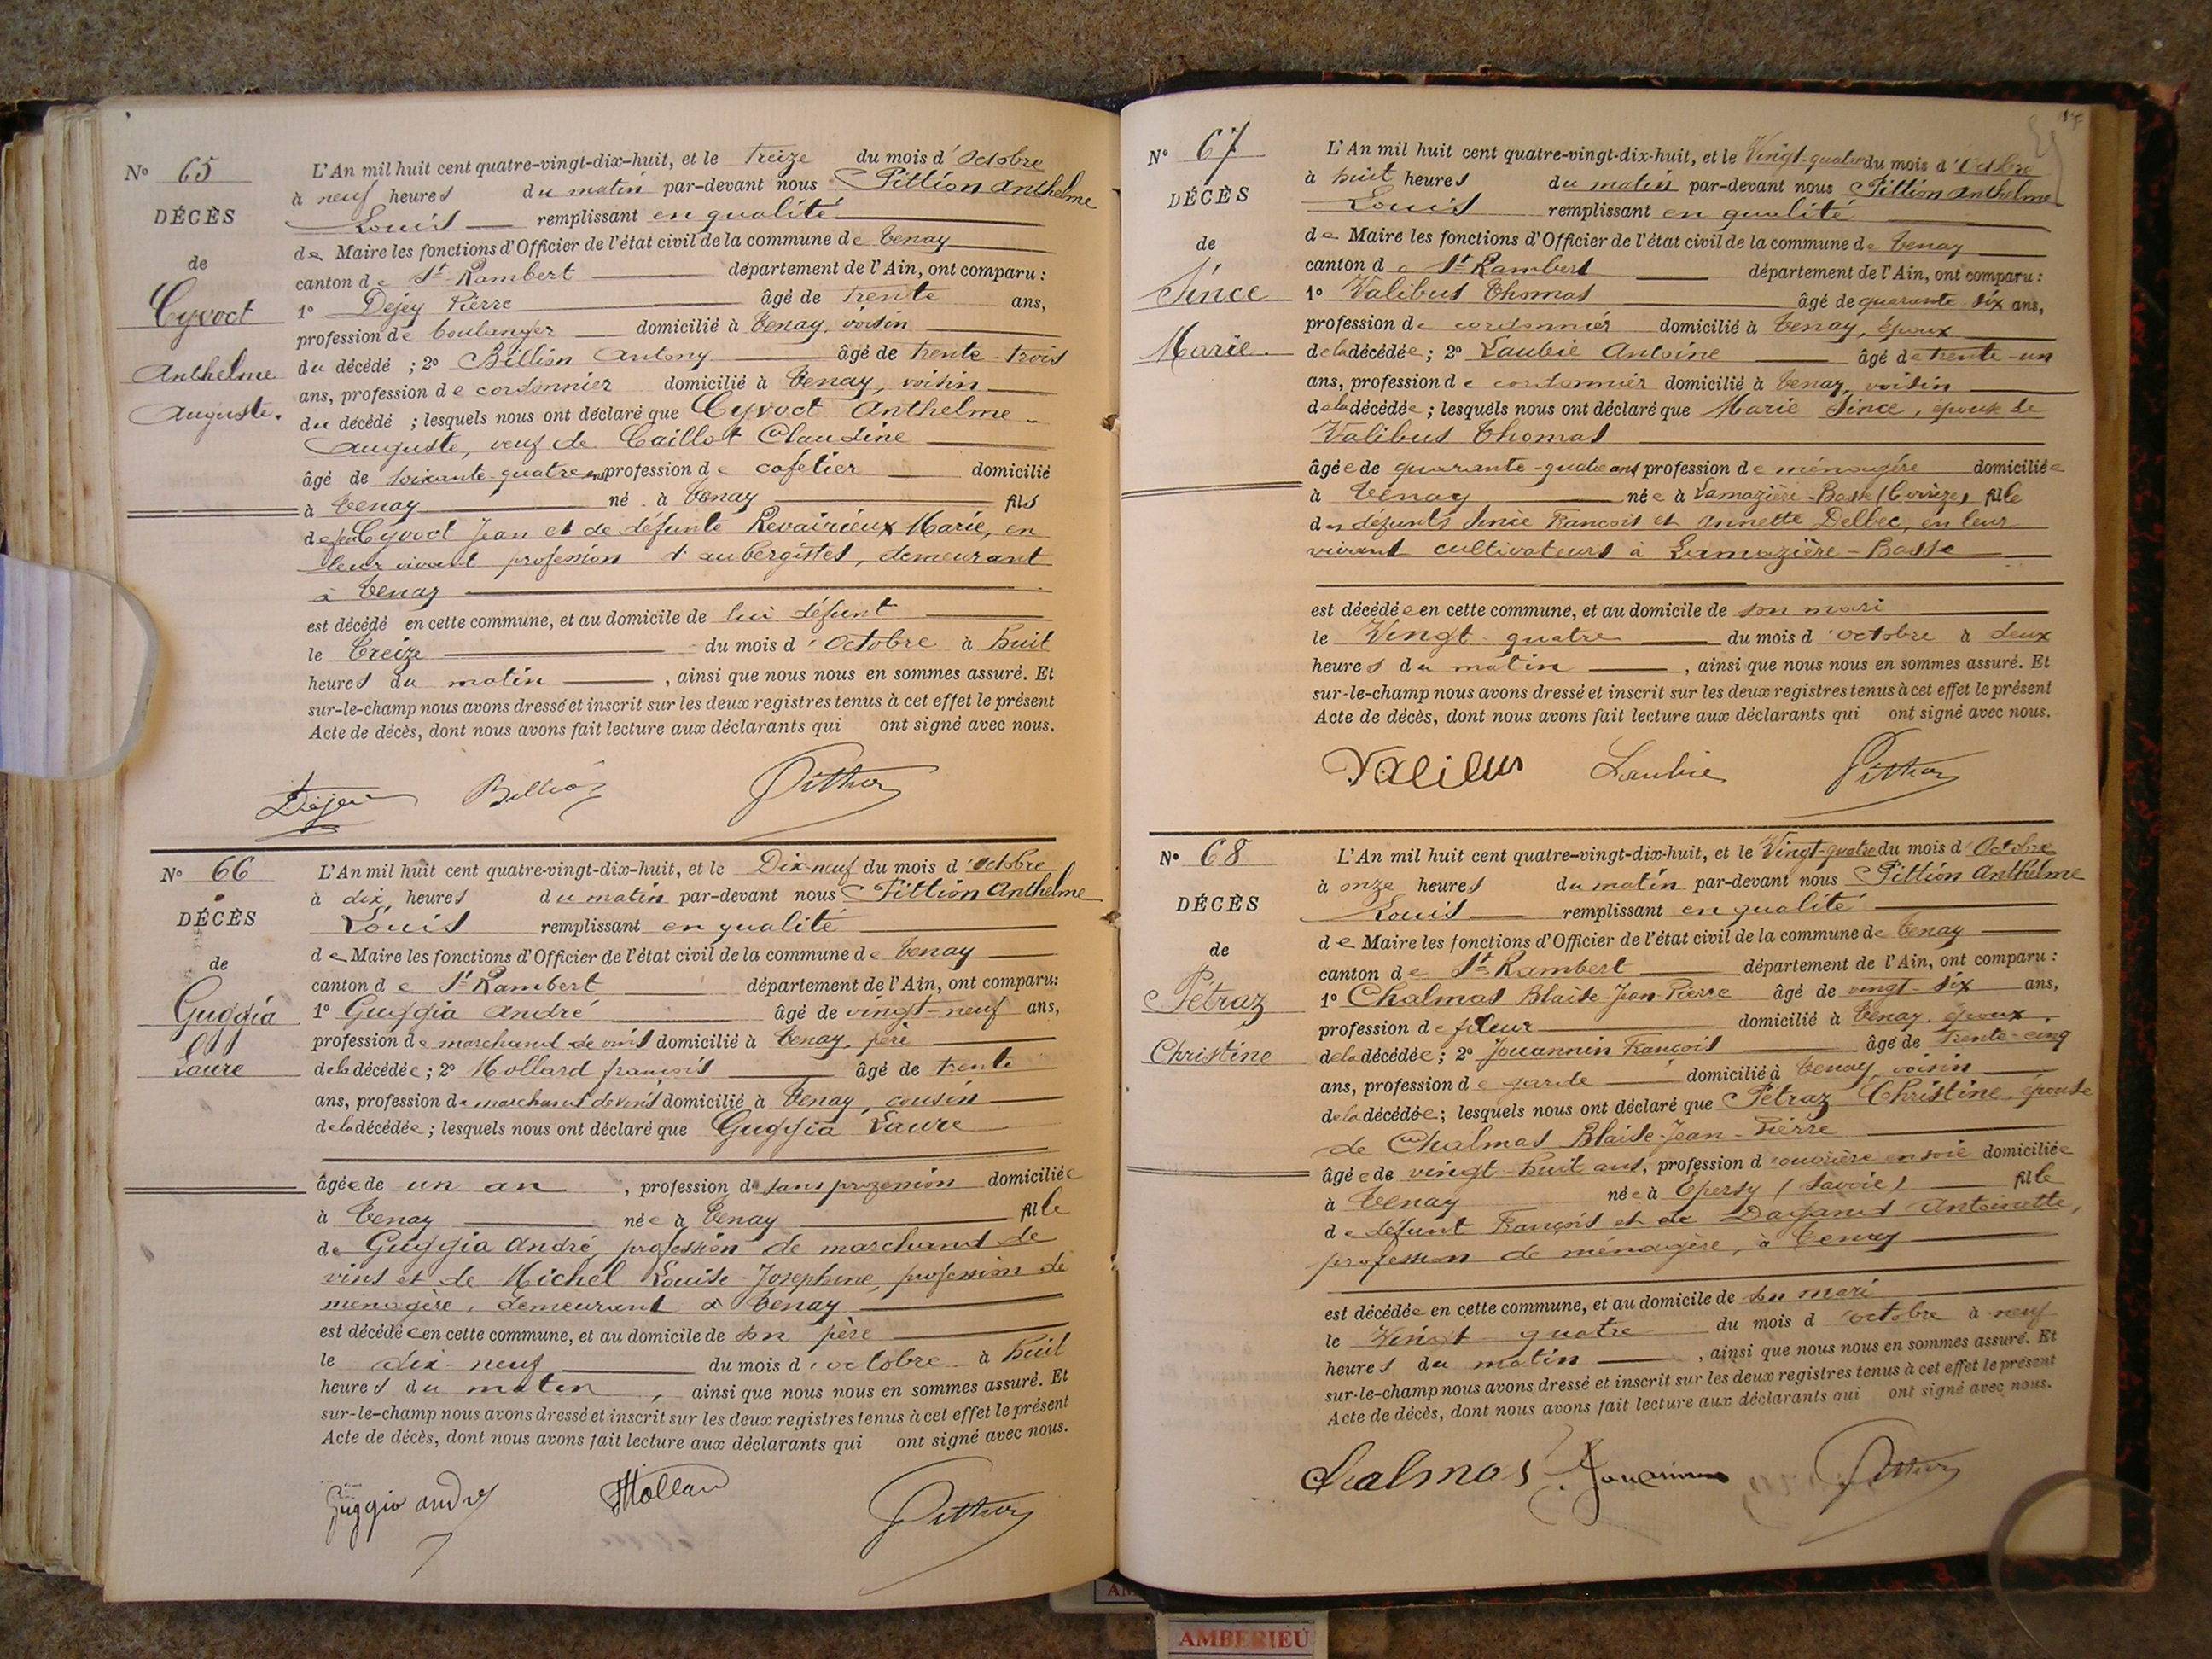 N° 65
DÉCÈS
de
Cyvoct
Anthelme
Auguste.
L'An mil huit cent quatre-vingt-dix-huit, et le treize du mois d'Octobre
à neuf heures du matin par-devant nous Pittion Anthelme
Louis remplissant en qualité
de Maire les fonctions d'Officier de l'état civil de la commune de Tenay
canton de St Rambert département de l'Ain, ont comparu :
1° Dejey Pierre âgé de trente ans,
profession de boulanger domicilié à Tenay, voisin
du décédé ; 2° Billion Antony âgé de trente-trois
ans, profession de cordonnier domicilié à Tenay, voisin
du décédé ; lesquels nous ont déclaré que Cyvoct Anthelme
Auguste, veuf de Caillot Claudine
âgé de soixante-quatre ans profession de cafetier domicilié
à Tenay né à Tenay fils
de feu Cyvoct Jean et de défunte Revairieux Marie, en
leur vivant profession d'aubergistes, demeurant
à Tenay
est décédé en cette commune, et au domicile de lui défunt
le treize du mois d'Octobre à huit
heures du matin , ainsi que nous nous en sommes assuré. Et
sur-le-champ nous avons dressé et inscrit sur les deux registres tenus à cet effet le présent
Acte de décès, dont nous avons fait lecture aux déclarants qui ont signé avec nous.
Dejey Billion Pittion
N° 66
DÉCÈS
de
Guggia
Laure
L'An mil huit cent quatre-vingt-dix-huit, et le Dix-neuf du mois d'octobre
à dix heures du matin par-devant nous Pittion Anthelme
Louis remplissant en qualité
de Maire les fonctions d'Officier de l'état civil de la commune de Tenay
canton de St Rambert département de l'Ain, ont comparu:
1° Guggia André âgé de vingt-neuf ans,
profession de marchand de vins domicilié à Tenay, père
de la décédée ; 2° Mollard françois âgé de trente
ans, profession de marchand de vins domicilié à Tenay, cousin
de la décédée ; lesquels nous ont déclaré que Guggia Laure
âgée de un an , profession de sans profession domiciliée
à Tenay née à Tenay fille
de Guggia André, profession de marchand de
vins et de Michel Louise-Josephine, profession de
ménagère, demeurant à Tenay
est décédée en cette commune, et au domicile de son père
le dix-neuf du mois d'octobre à huit
heures du matin , ainsi que nous nous en sommes assuré. Et
sur-le-champ nous avons dressé et inscrit sur les deux registres tenus à cet effet le présent
Acte de décès, dont nous avons fait lecture aux déclarants qui ont signé avec nous.
Guggia andré Mollard Pittion
N° 67
DÉCÈS
de
Since
Marie
L'An mil huit cent quatre-vingt-dix-huit, et le Vingt-quatre du mois d'Octobre
à huit heures du matin par-devant nous Pittion Anthelme
Louis remplissant en qualité
de Maire les fonctions d'Officier de l'état civil de la commune de Tenay
canton de St Rambert département de l'Ain, ont comparu :
1° Valibus Thomas âgé de quarante-six ans,
profession de cordonnier domicilié à Tenay, époux
de la décédée ; 2° Laubie Antoine âgé de trente-un
ans, profession de cordonnier domicilié à Tenay, voisin
de la décédée ; lesquels nous ont déclaré que Marie Since, épouse de
Valibus Thomas
âgée de quarante-quatre ans profession de ménagère domiciliée
à Tenay née à Lamazière-Basse (Corrèze) fille
des défunts Since François et Annette Delbec, en leur
vivant cultivateurs à Lamazière-Basse
est décédée en cette commune, et au domicile de son mari
le Vingt-quatre du mois d'octobre à deux
heures du matin , ainsi que nous nous en sommes assuré. Et
sur-le-champ nous avons dressé et inscrit sur les deux registres tenus à cet effet le présent
Acte de décès, dont nous avons fait lecture aux déclarants qui ont signé avec nous.
Valibus Laubie Pittion
N° 68
DÉCÈS
de
Pétraz
Christine
L'An mil huit cent quatre-vingt-dix-huit, et le Vingt-quatre du mois d'Octobre
à onze heures du matin par-devant nous Pittion Anthelme
Louis remplissant en qualité
de Maire les fonctions d'Officier de l'état civil de la commune de Tenay
canton de St Rambert département de l'Ain, ont comparu :
1° Chalmas Blaise-Jean-Pierre âgé de vingt-six ans,
profession de fileur domicilié à Tenay, époux
de la décédée ; 2° Jouannin François âgé de trente-cinq
ans, profession de garde domicilié à Tenay, voisin
de la décédée ; lesquels nous ont déclaré que Pétraz Christine, épouse
de Chalmas Blaise-Jean-Pierre
âgée de vingt-huit ans, profession d'ouvrière en soie domiciliée
à Tenay née à Epersy (Savoie) fille
de défunt François et de Dagand Antoinette,
profession de ménagère, à Tenay
est décédée en cette commune, et au domicile de son mari
le Vingt quatre du mois d'octobre à neuf
heures du matin , ainsi que nous nous en sommes assuré. Et
sur-le-champ nous avons dressé et inscrit sur les deux registres tenus à cet effet le présent
Acte de décès, dont nous avons fait lecture aux déclarants qui ont signé avec nous.
Chalmas Jouannin Pittion
AMBERIEU